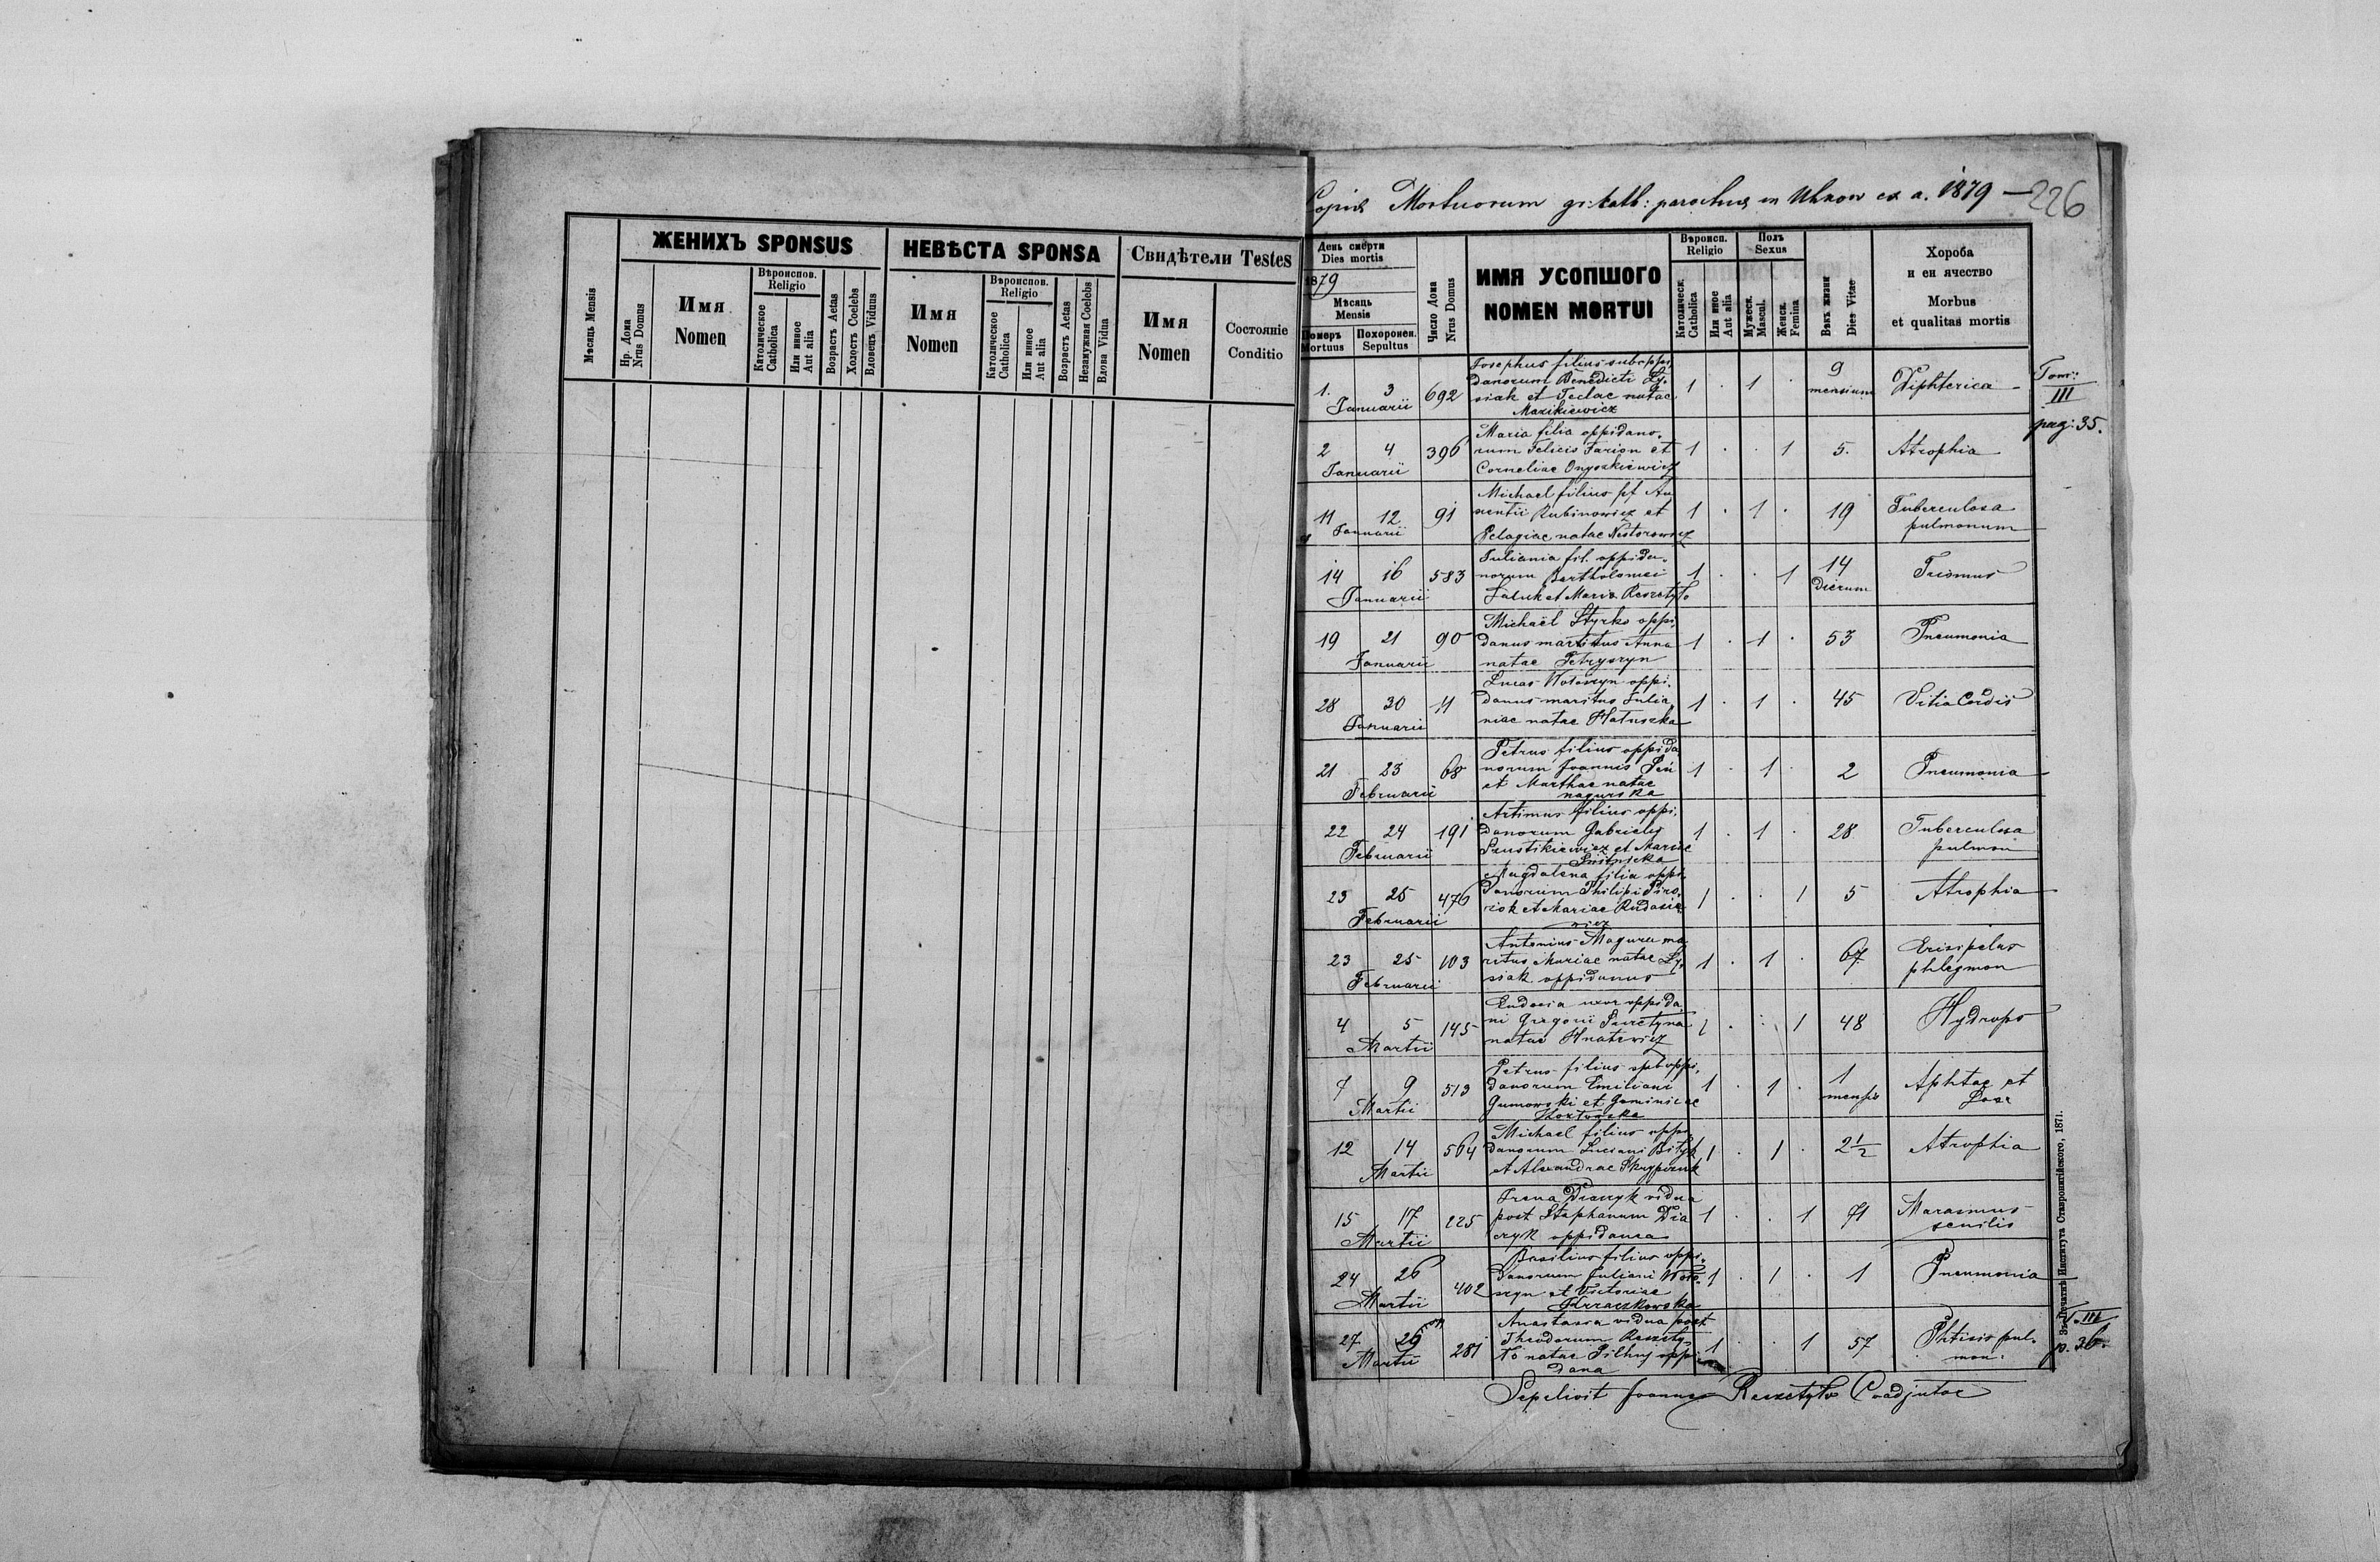 ЖЕНИХЪ SPONSUS
НЕВѢСТА SPONSA
Свидѣтели Testes
Мѣсяць Mensis
Нр. Дома
Nrus Domus
Имя
Nomen
Вѣроиспов.
Religio
Католическое
Catholica
Или иное
Aut alia
Возрастъ Aetas
Холостъ Coelebs
Вдовецъ Viduus
Имя
Nomen
Вѣроиспов.
Religio
Католическое
Catholica
Или иное
Aut alia
Возрастъ Aetas
Незамужная Coelebs
Вдова Vidua
Имя
Nomen
Состояніе
Conditio
Copia Mortuorum gr: kath: parochiae in Uhnow ex a. 1879 — 226
День смерти
Dies mortis
1879
Мѣсяць
Mensis
Померъ
Mortuus
Похоронен.
Sepultus
Число Дома
Nrus Domus
ИМЯ УСОПШОГО
NOMEN MORTUI
Вѣроисп.
Religio
Католическ.
Catholica
Или иное
Aut alia
Полъ
Sexus
Мужеск.
Mascul.
Женск.
Femina
Вѣкъ жизни
Dies Vitae
Хороба
и еи ячество
Morbus
et qualitas mortis
Josephus filius suboppi
1. 3 692 danorum Benedicti Ly- 1 . 1 . 9 mensium Diphterica
Januarii siak et Teclae natae
Mazikiewicz
Tom: III pag: 35.
Maria filia oppidano-
2 4 396 rum Felicis Farion et 1 . . 1 5. Atrophia
Januarii Corneliae Onyszkiewicz
Michael filius pf Au
11 12 91 xentii Rubinowicz et 1 . 1 . 19 Tuberculosa
Januarii Pelagiae natae Nestorowicz pulmonum
Juliania fil. oppida-
14 16 583 norum Bartholomei 1 . . 1 14 Dierum Trismus
Januarii et Maria Reszetyło
Michaël Styrko oppi
19 21 90 danus maritus Anna 1 . 1 . 53 Pneumonia
Januarii natae Petryszyn
Lucas Wołoszyn oppi-
28 30 11 danus maritus Julia 1 . 1 . 45 Vitia Cordis
Januarii niae natae Hałuszka
Petrus filius oppida
21 23 68 norum Joannis 1 . 1 . 2 Pneumonia
Februarii et Marthae natae
nagurska
Artimus filius oppi-
22 24 191 danorum Gabrielis 1 . 1 . 28 Tuberculosa
Februarii Szustikiewicz et Mariae pulmon
Magdalena filia oppi
23 25 476 danorum Philipi Piro- 1 . . 1 5 Atrophia
Februarii et Mariae Rudasie-
wicz
Antonius Magura ma
23 25 103 ritus Mariae natae Ly- 1 . 1 . 67 Erisipelas
Februarii siak oppidanus phlegmon
Eudocia uxor oppida
4 5 145 ni Gregorii 1 . . 1 48 Hydrops
Martii natae Hnatewicz
Petrus filius suboppi-
7 9 513 danorum Emiliani 1 . 1 . 1 mensis Aphtae et
Martii Gumowski et
Michael filius oppi
12 14 564 danorum Luciani 1 . 1 . 2½ Atrophia
Martii et Alexandrae Skrypczuk
Irena Diaczyk vidua
15 17 225 post Stephanum Dia 1 . . 1 71 Marasmus
Martii czyk oppidanea senilis
Basilius filius oppi-
24 26 402 danorum Juliani Woło- 1 . 1 . 1 Pneumonia
Martii szyn et Victoriae
Anastasia vidua post
27 281 Theodorum Reszety- 1 . . 1 57 Phtisis pul-
Martii ło natae Pilhuj oppi mon.
dana
T. III p. 36.
Sepelivit Joannes Reszetyło Coadjutor
Зъ Печатнѣ Института Ставропигійского, 1871.